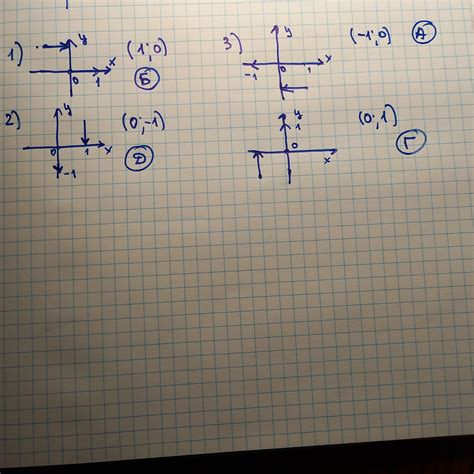 1) y (1;0)
0 1 x
Б
2) y (0;-1)
0 1 x
-1
Д
3) y (-1;0) А
-1 0 1 x
y (0;1)
1
0 x
Г